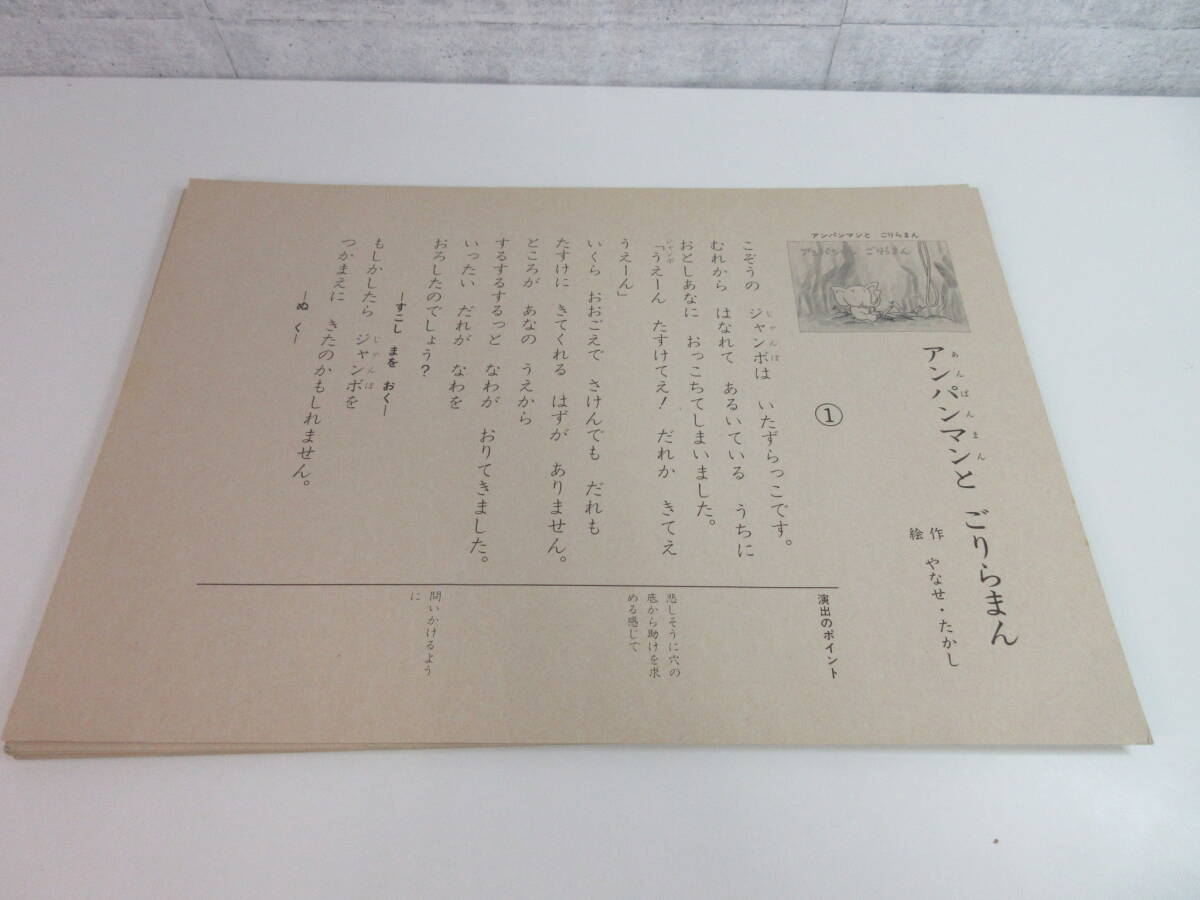 アンパンマンと ごりらまん
アンパンマンと ごりらまん
アンパンマンと ごりらまん
あんぱんまん
作 やなせ・たかし
絵
①
こぞうの ジャンボは いたずらっこです。
じゃんぼ
むれから はなれて あるいている うちに
おとしあなに おっこちてしまいました。
ジャンボ
「うえーん たすけてえ! だれか きてえ
うえーん」
いくら おおごえで さけんでも だれも
たすけに きてくれる はずが ありません。
ところが あなの うえから
するするするっと なわが おりてきました。
いったい だれが なわを
おろしたのでしょう?
―すこし まを おく―
もしかしたら ジャンボを
じゃんぼ
つかまえに きたのかもしれません。
―ぬ く―
演出のポイント
悲しそうに穴の
底から助けを求
める感じで
問いかけるよう
に